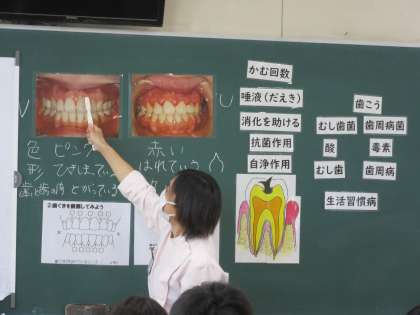 かむ回数
唾液(だえき)
消化を助ける
抗菌作用
自浄作用
歯こう
むし歯菌 歯周病菌
酸 毒素
むし歯 歯周病
生活習慣病
色 ピンク 赤い
形 ひきしまっている はれている
とがっている
②歯ぐきを観察してみよう